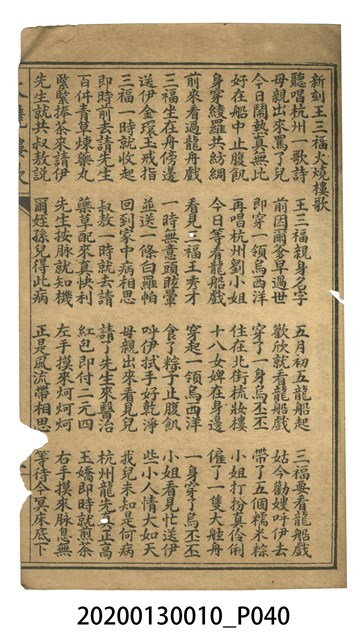 新刻王三福火燒樓歌
聽唱杭州一歌詩 王三福親身名字 五月初五龍船起 三福要看龍船戲
母親出來罵了兒 前因爾爹早過世 歡欣就看龍船戲 姑今勸嫂呼伊去
今日鬧熱真無比 即穿一領烏西洋 穿了一身烏丕丕 帶了五個糯米粽
好在船中止腹飢 再唱杭州劉小姐 住在北街梳妝樓 小姐打扮真伶俐
身穿綾羅共紡綢 今日等看龍船戲 十八女婢在身邊 僱了一隻大艍舟
前來看過龍舟戲 看見三福王秀才 穿起一領烏西洋 一身穿了烏丕丕
三福坐在舟傍邊 一時無意頭眩暈 食了粽子止腹飢 小姐看見忙送伊
送伊金環玉戒指 並送一條白羅帕 呼伊拭手好乾淨 些小人情大如天
三福一時就收起 回到家中病相思 母親出來看見兒 我兒未知是何病
即時前去請先生 叔叔一時就去請 請了先生來醫治 杭州龍先真正高
百件青草煉藥丸 藥草配來真快利 紅包即付二元四 王嬌即時就煎茶
緊緊捧茶來請伊 先生按脉就知機 左手摸來呵呵呵 右手摸來脉息無
先生就共叔叔說 爾姪孫兒得此病 正是風流帶相思 等待今冥床底下
20200130010_P040